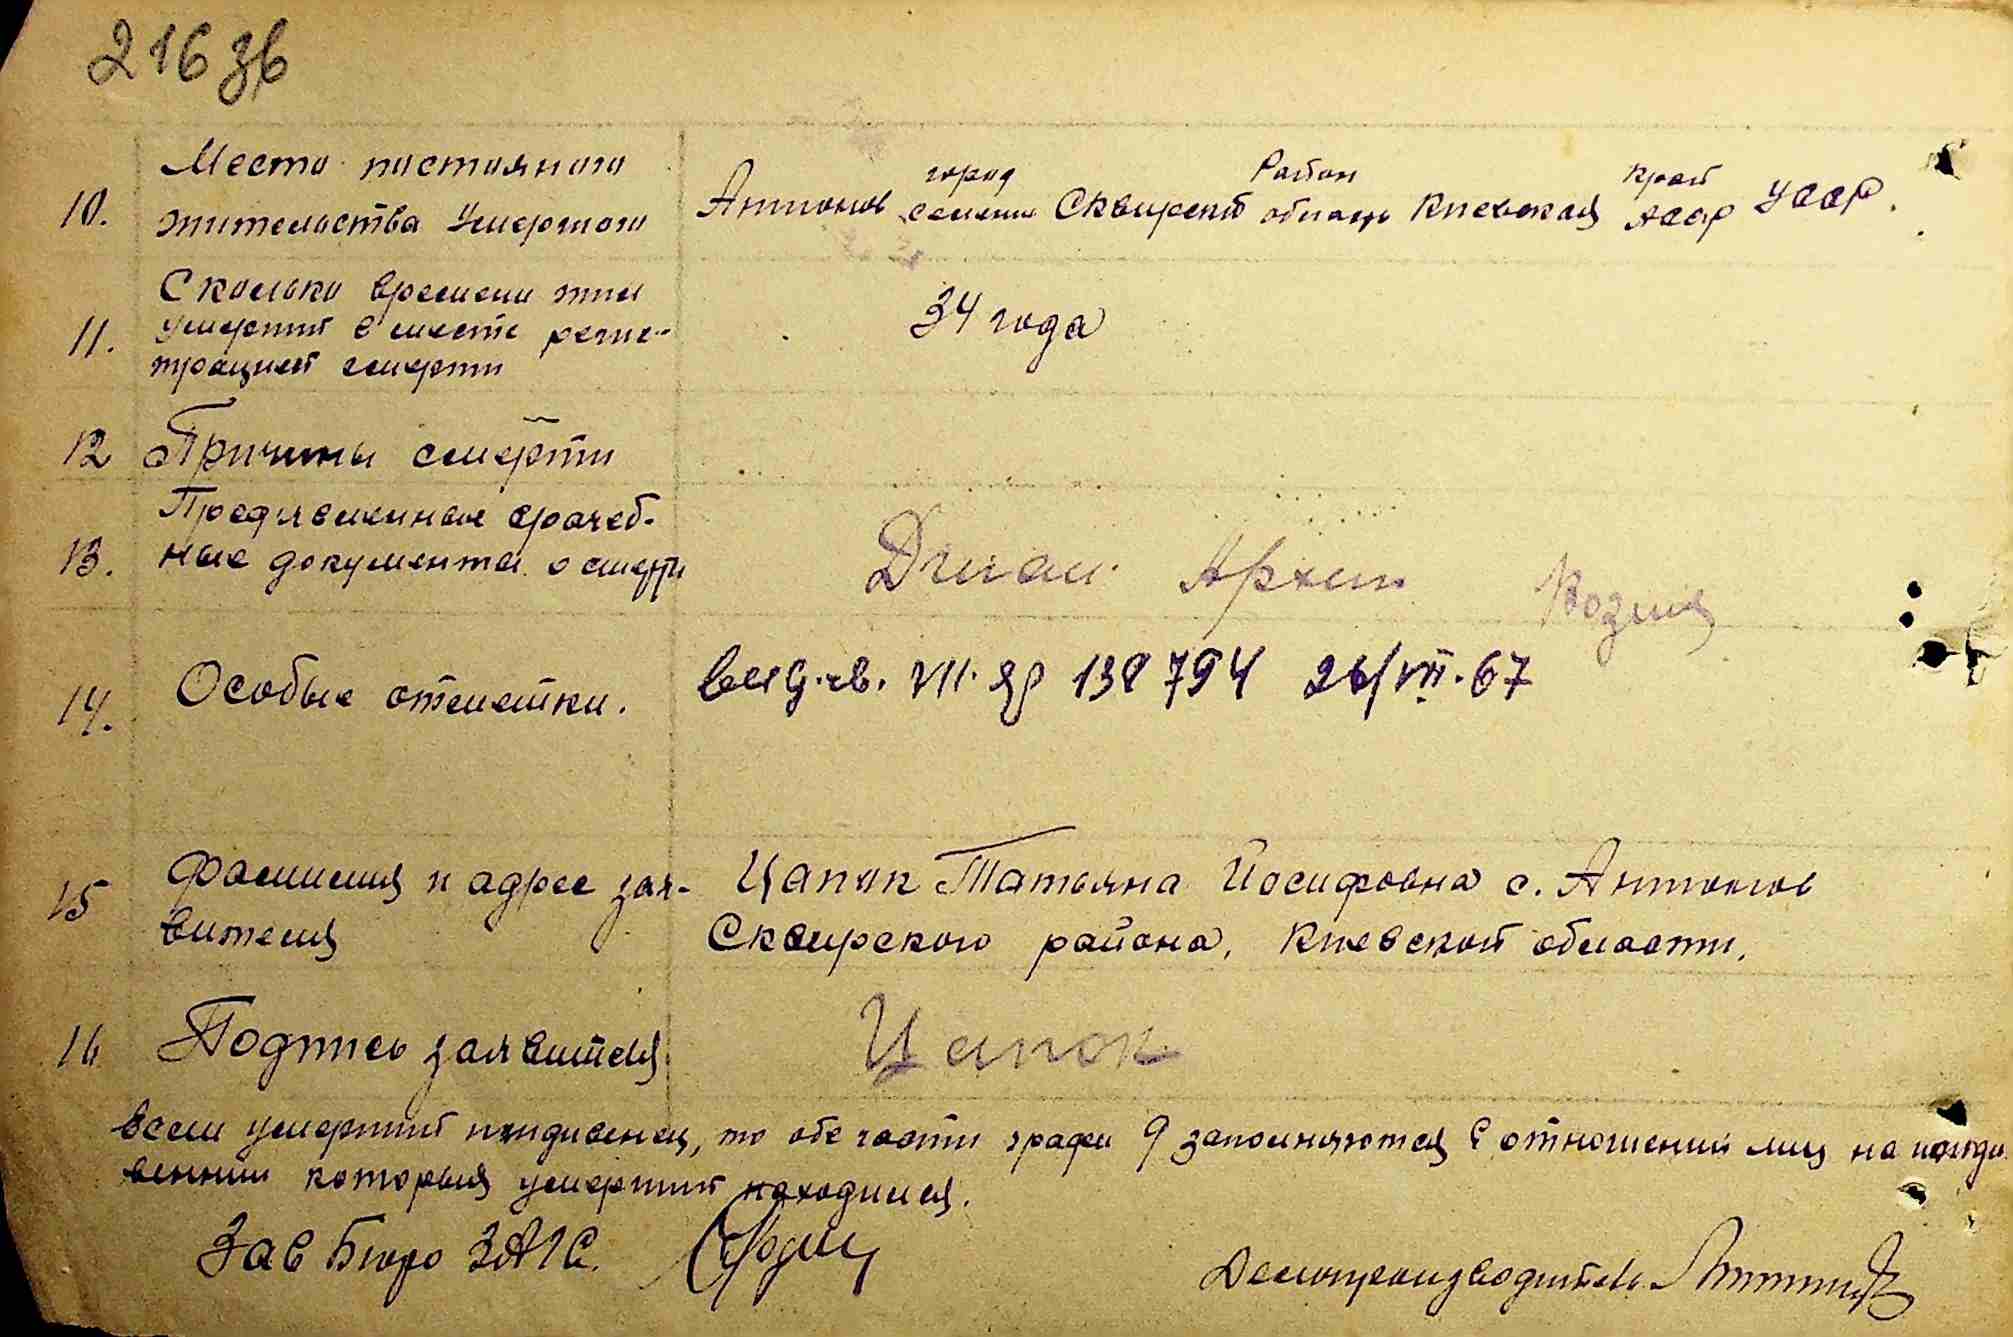 216 зв
Место постояного
10. жительства Умершого
Антонов город селение Сквирский Район область Киевская край АССР УССР.
Сколько времени жил
11. умерший в месте регис-
трацией смерти
34 года
12 Причины смерти
Предявленные врачеб-
13. ные документы о смерти
Архип
14. Особые отметки.
выд. св. VII. 138794 26/VII.67
15 Фамилия и адрес зая-
вителя
Цапок Татьяна Йосифовна с. Антонов
Сквирского района, Киевской области.
16 Подпись заявителя
Цапок
Если умерший иждивенец, то обе части графи 9 заполняются в отношений лиц на ижди
вении которых умерший находился.
Зав Бюро ЗАГС.
Делопроизводитель